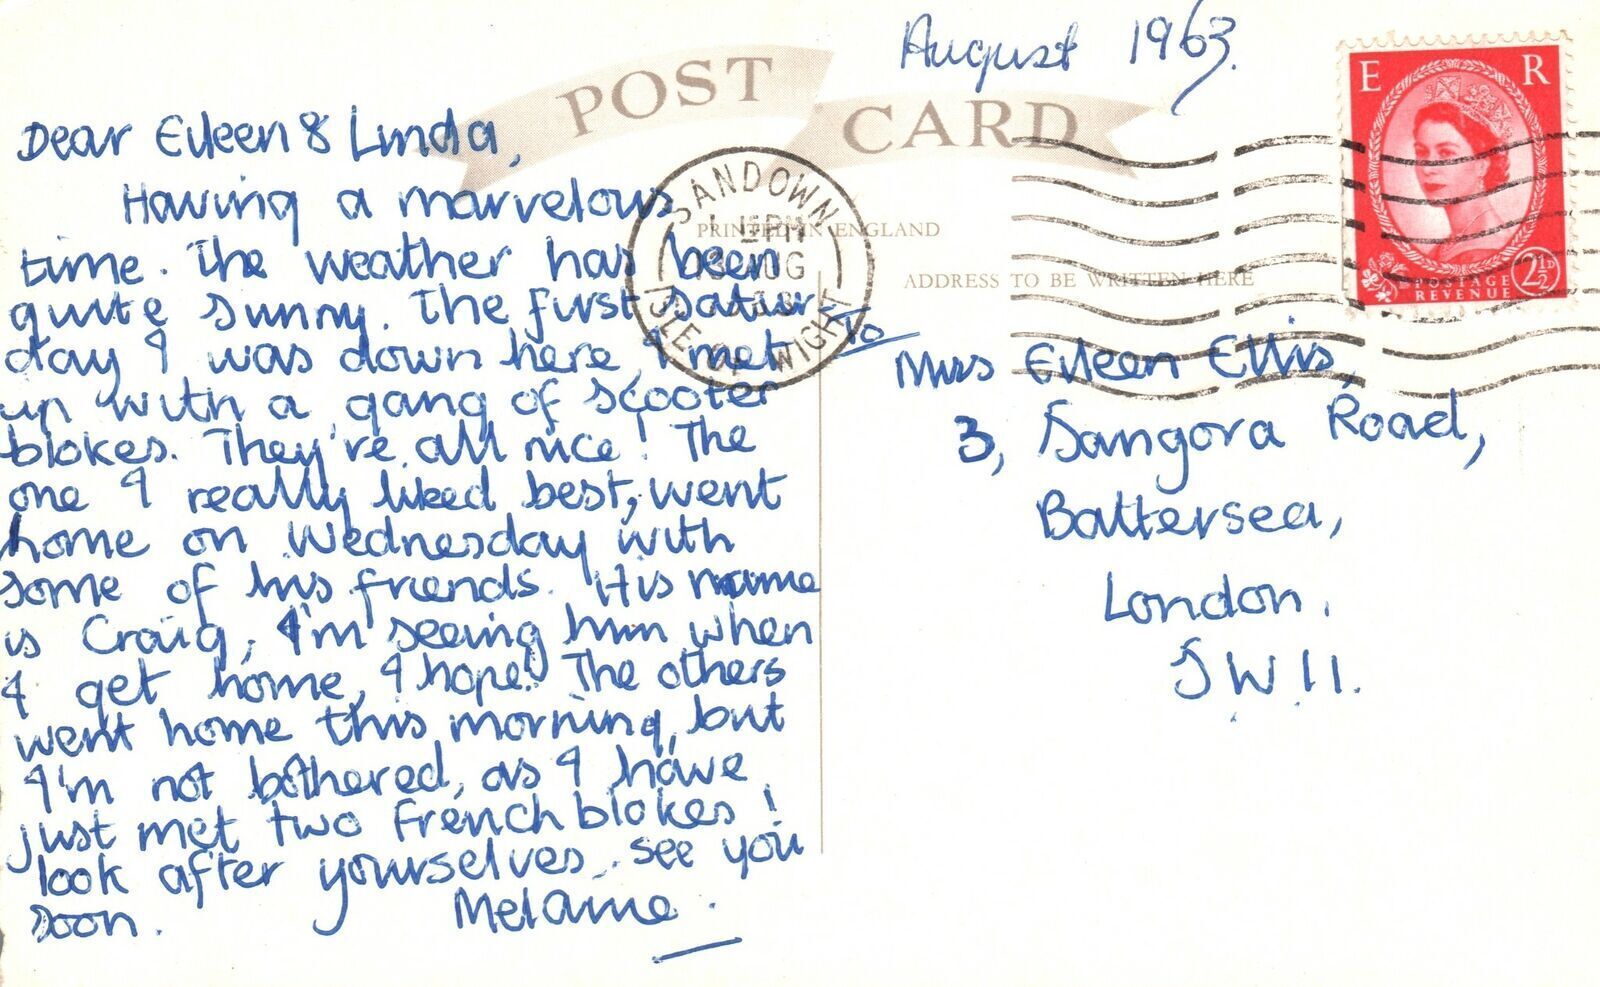 August 1963.
POST CARD
Dear Eileen & Linda,
Having a marvelous
time. The weather has been
quite sunny. The first Satur-
day I was down here, I met
up with a gang of scooter
blokes. They're all nice! The
one I really liked best, went
home on Wednesday with
some of his friends. His name
is Craig, I'm seeing him when
I get home, I hope! The others
went home this morning, but
I'm not bothered, as I have
just met two French blokes!
look after yourselves. see you
soon. Melanie.
PRINTED IN ENGLAND
ADDRESS TO BE WRITTEN HERE
SANDOWN
PM
AUG
ISLE OF WIGHT
E R
POSTAGE
REVENUE
2½D
To
Miss Eileen Ellis,
3, Sangora Road,
Battersea,
London.
SW11.